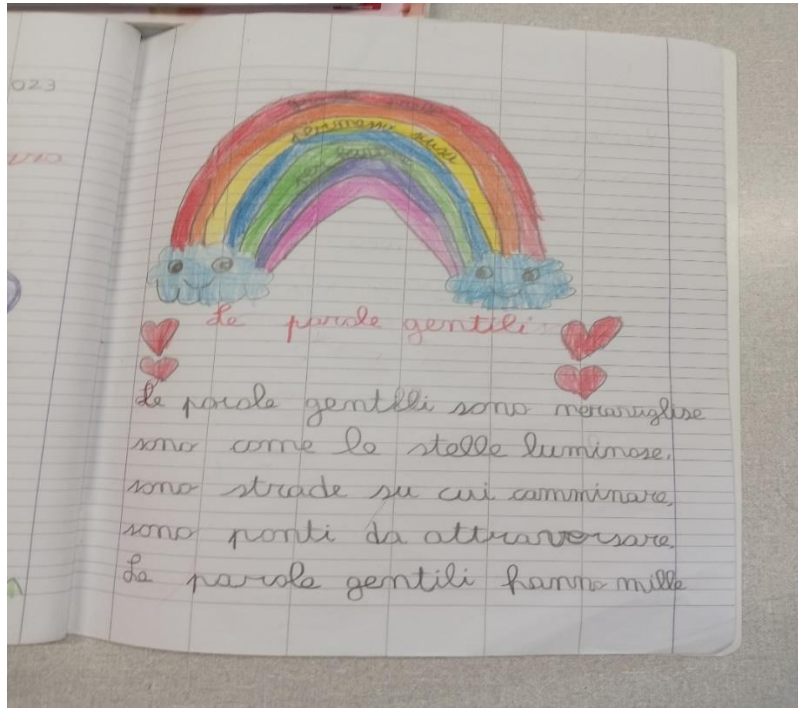 023
buongiorno scusa
Le parole gentili
Le parole gentili sono meraviglise
sono come le stelle luminose,
sono strade su cui camminare,
sono ponti da attraversare.
Le parole gentili hanno mille